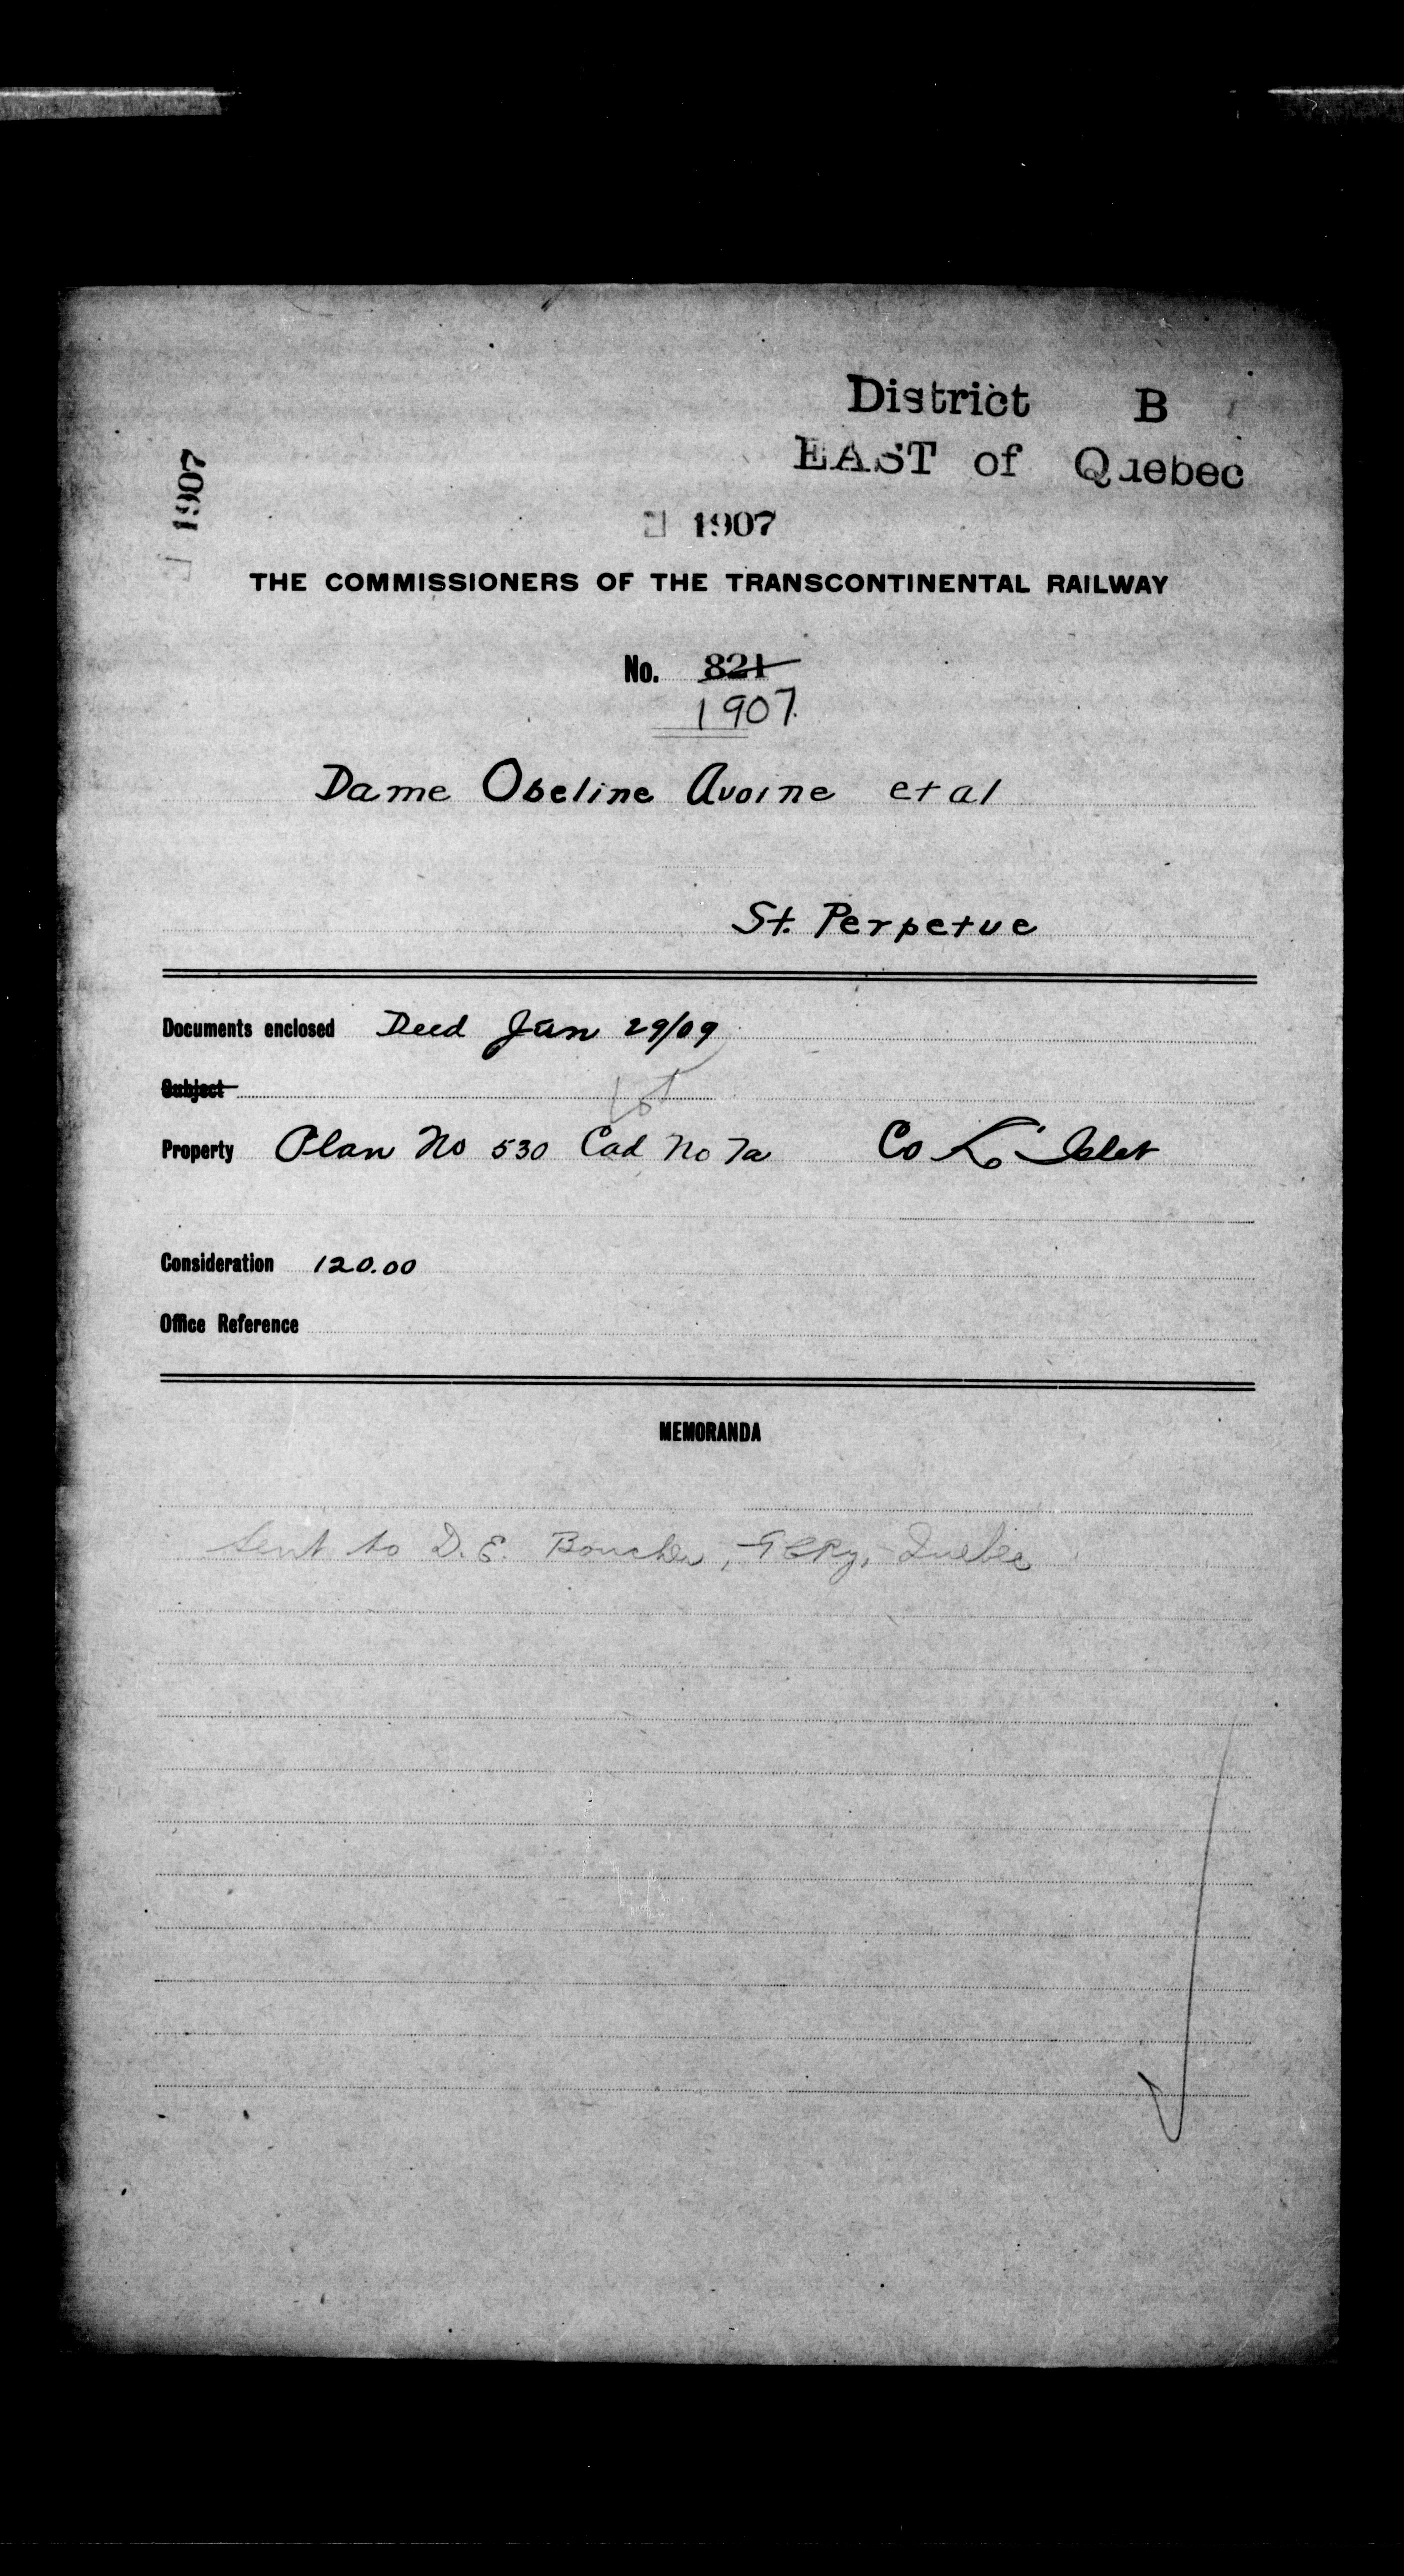 District B
EAST of Quebec
1907
1907
THE COMMISSIONERS OF THE TRANSCONTINENTAL RAILWAY
No. 821
1907
Dame Obeline Avoine et al
St. Perpetue
Documents enclosed Deed Jan 29/09
Subject
Property Plan No 530 Cad No 7a Co L'Islet
Consideration 120.00
Office Reference
MEMORANDA
Sent to D.E. Boucher, Quebec